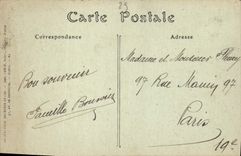 29
Carte Postale
Correspondance
Adresse
Madame et Monsieur Fleury
97 Rue Manin 97
Bon souvenir
Famille
Paris
19e